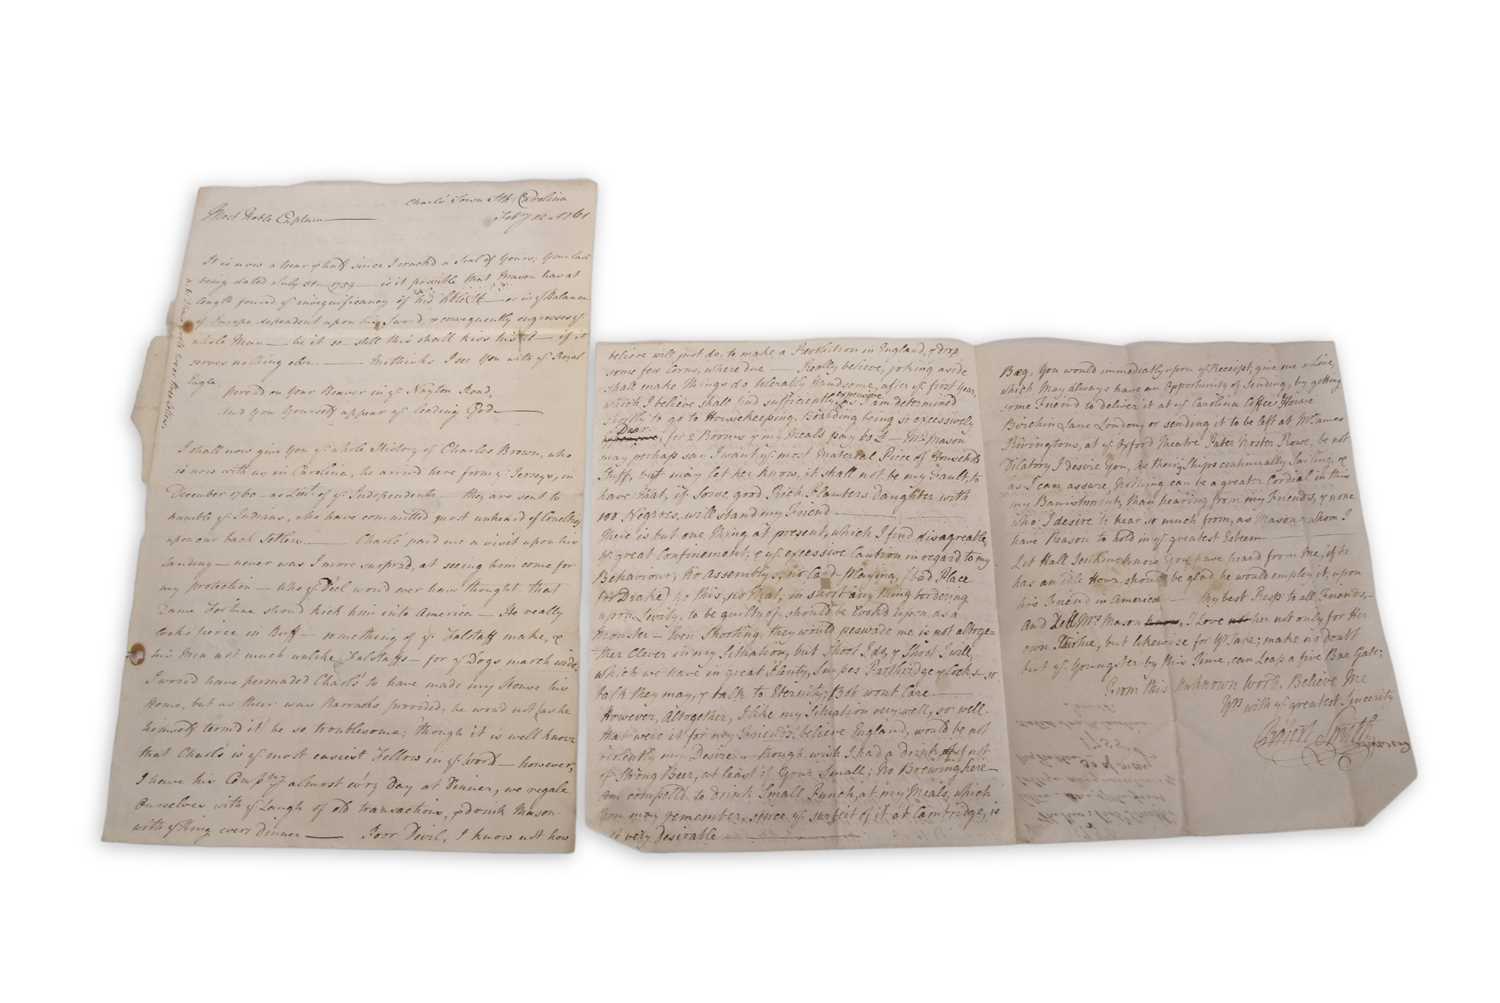 Charls Town Sth Carolina
Most Noble Captain
Feby 12 1761
It is now a Year & half since I reached a Seal of Yours; Your last
being dated July 1759 — is it possible that Mason has at
length found ye insignificancy of his — or is ye Balance
of Europe dependent upon his Sword, & consequently engrosses ye
whole Man — be it so still this shall kiss his — if it
serves nothing else — methinks I see You with ye Royal
Eagle,
Perch'd on Your Beaver in ye Road,
And You Yourself appear ye leading God —
I shall now give You ye whole History of Charles Brown, who
is now with us in Carolina, he arriv'd here from ye Jerseys, in
December 1760 — as Lieut of ye Independents — they are sent to
humble ye Indians, who have committed most unheard of Cruelties
upon our back Setlers — Charls paid me a visit upon his
Landing — never was I more surpris'd, at seeing him come for
my protection — who ye Deel would ever have thought that
Dame Fortune shoud kick him into America — He really
looks fierce in Buff — something of ye Falstaff make, &
his Men not much unlike Falstaffs — for ye Dogs march wide
I woud have persuaded Charls to have made my House his
Home, but as there was Barracks provided, he woud not (as he
himself term'd it) be so troublesome; though it is well known
that Charls is ye most easiest Fellow in ye World — however,
I have his Company almost evry Day at Dinner, we regale
Ourselves with ye Laugh of old transactions, & drink Mason
with ye King every dinner — Poor Devil, I know not how
believe will just do, to make a Revolution in England, & drop
some few Corns, where due — Really believe, joking aside
shall make things do tolerably handsome, after ye first Year,
which I believe shall find sufficiently expensive, as I am determined
to go to Housekeeping. Boarding being so excessively
Dear, (for 2 Rooms & my Meals pay 80£ — Mrs Mason
may perhaps say I want ye most Material Piece of Household
Stuff, but may let her know, it shall not be my Fault, to
have that, if some good Rich Planters Daughter with
100 Negroes, will stand my Friend —
There is but one thing at present, which I find disagreable,
ye great Confinement, & ye excessive Caution in regard to my
Behaviour; No Assemblys, no Card-Playing, (Bad Place
for Drake) no this, no that, in short any thing bordering
upon Levity, to be guilty of, shoud be look'd upon, as a
Monster — Even Shooting, they woud perswade me is not altoge-
ther Clever in my Situation, but Shoot I do, & Shoot I will,
which we have in great Plenty, Snipes Partridge & Cocks — so
talk they may, & talk to Eternity, Bob wont Care —
However, Altogether, I like my Situation very well, so well
that were it for my Friends, believe England, woud be not
violently my Desire — though wish I had a Drink just
of Strong Beer, at least of Your Small; No Brewing here —
am compell'd to drink Small Punch, at my Meals, which
You may remember, since ye surfeit of it at Cambridge, is
not very desirable —
Beg, You would immediately upon ye Receipt, give me a Line,
which May always have an Opportunity of Sending, by getting
some Friend to deliver it at ye Carolina Coffee House
Birchin Lane London, or sending it to be left at Mr James
Rivingtons, at ye Oxford Theatre Pater Noster Rowe, be not
Dilatory I desire You, as there's Ships continually Sailing, &
as I can assure, Nothing can be a greater Cordial in this
my Banishment, than hearing from my Friends, & none
who, I desire to hear so much from, as Mason, whom I
have Reason to hold in ye greatest Esteem —
Let Hall know You have heard from me, if he
has an Idle Hour, shoud be glad he would employ it, upon
his Friend in America — My best Resps to all Friends,
and tell Mrs Mason, I Love her not only for Her
own, but likewise for Yr Sake; make no doubt
but ye Youngster by this time, can Leap a five Bar Gate;
From this Unknown World, Believe Me
Yrs with ye greatest Sincerity
Robert Smith